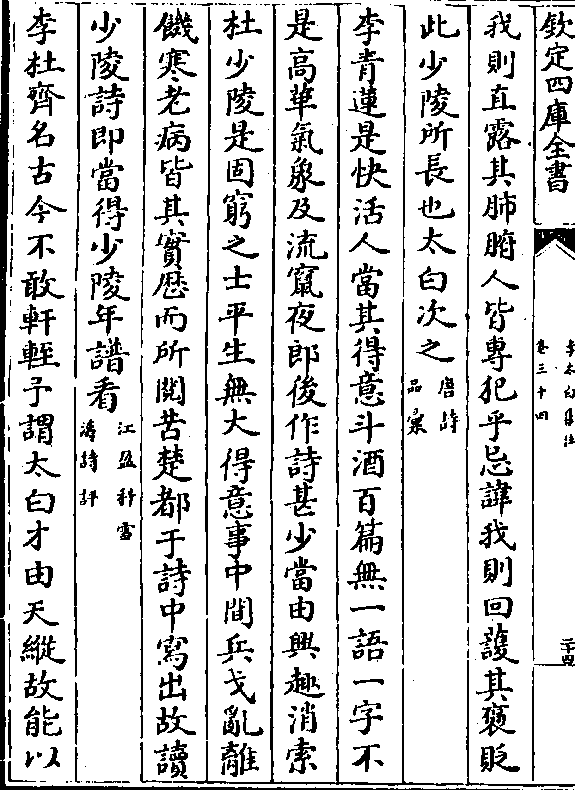 欽定四庫全書
李太白集注
卷三十四
二十四
我則直露其肺腑人皆專犯乎忌諱我則回䕶其襃貶
此少陵所長也太白次之
唐詩
品彙
李青蓮是快活人當其得意斗酒百篇無一語一字不
是高華氣象及流竄夜郎後作詩甚少當由興趣消索
杜少陵是固窮之士平生無大得意事中間兵戈亂離
饑寒老病皆其實歴而所閱苦楚都于詩中寫出故讀
少陵詩即當得少陵年譜看
江盈科雪
濤詩評
李杜齊名古今不敢軒輊予謂太白才由天縱故能以